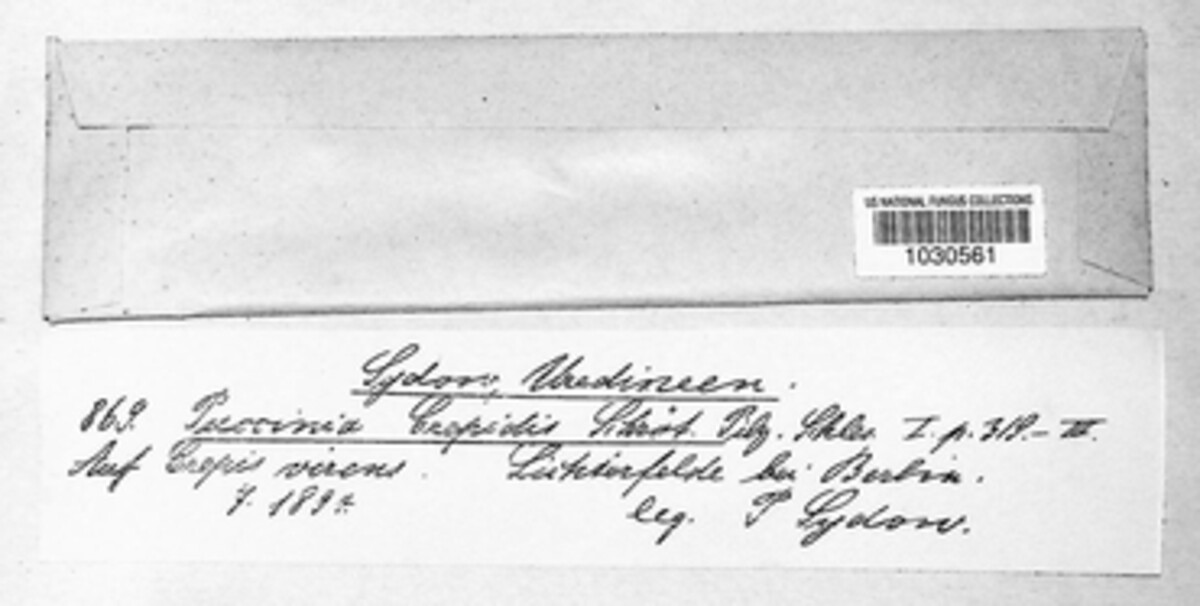 US NATIONAL FUNGUS COLLECTIONS
1030561
Sydow, Uredineen.
869. Puccinia Crepidis Schröt. Pilz. Schles. I. p. 319. – III.
Auf Crepis virens. Lichterfelde bei Berlin.
7.
leg. P Sydow.